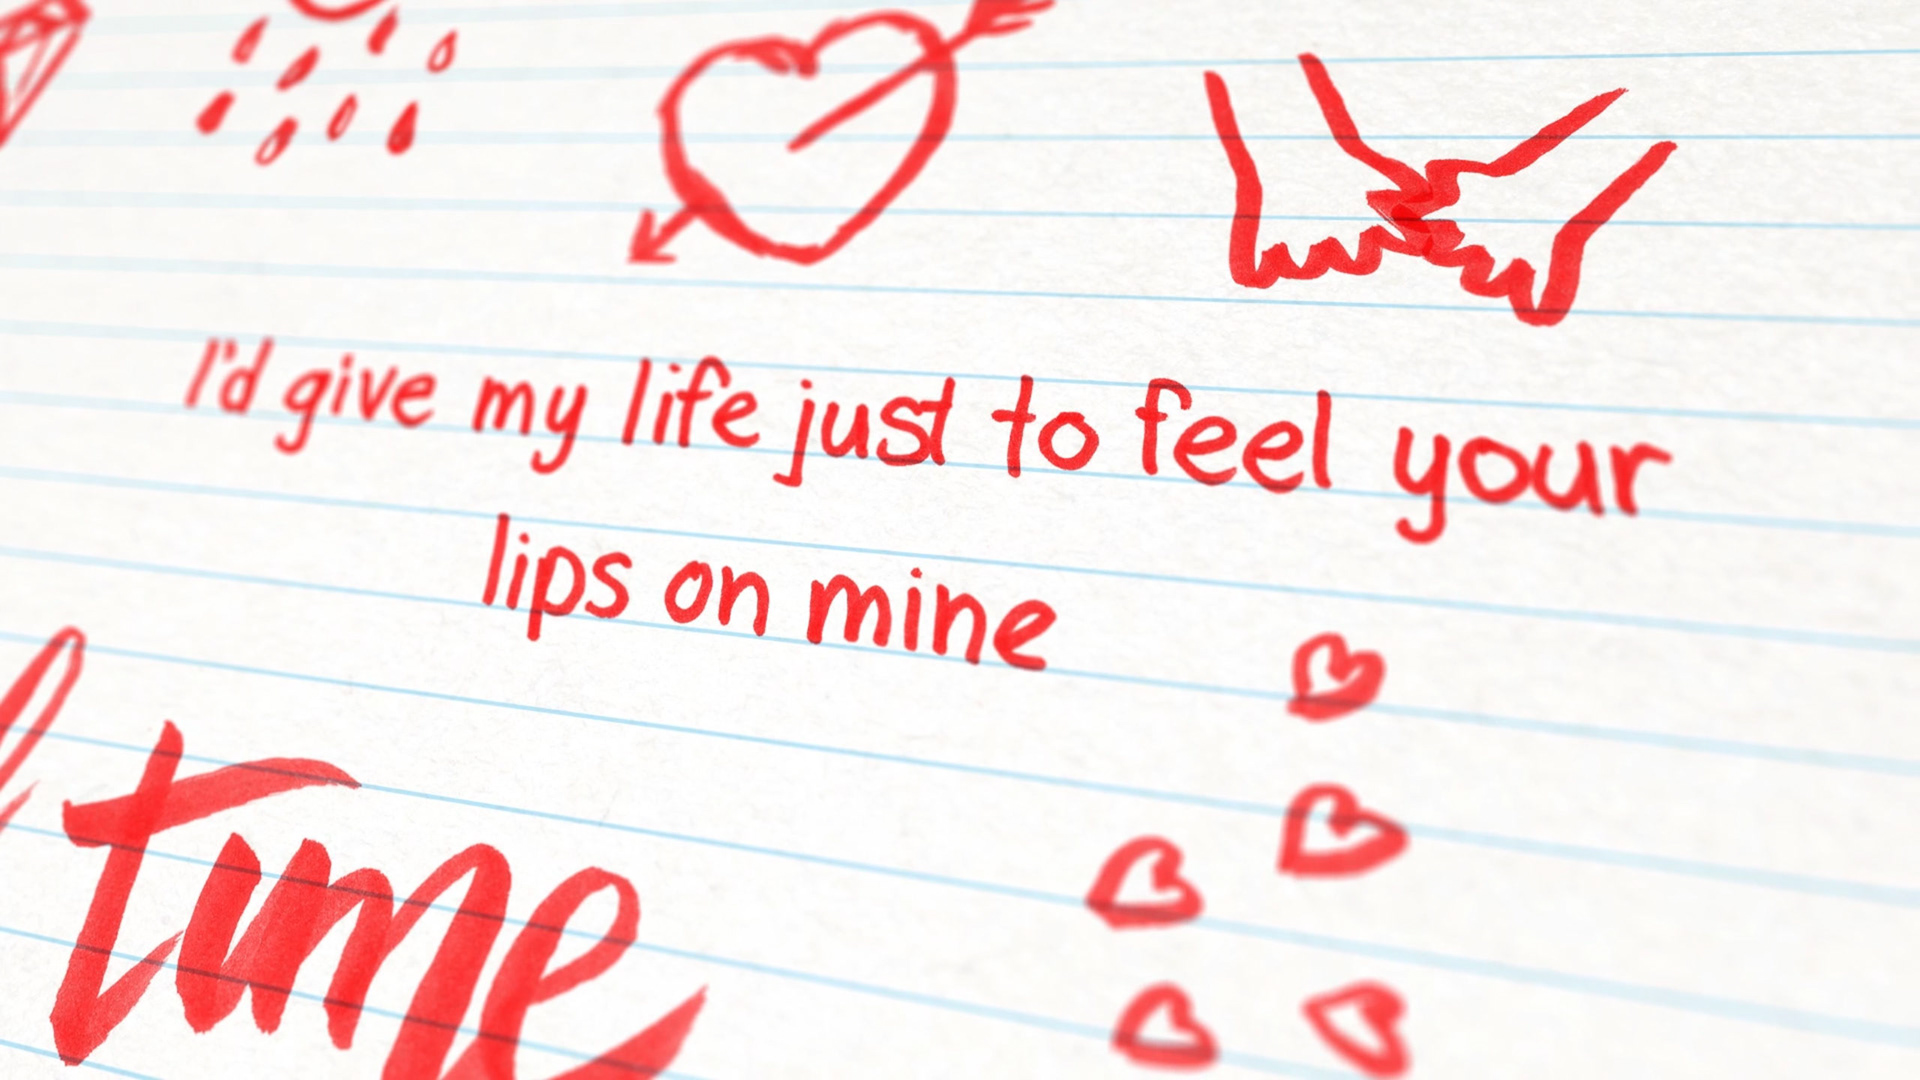 I'd give my life just to feel your
lips on mine
time